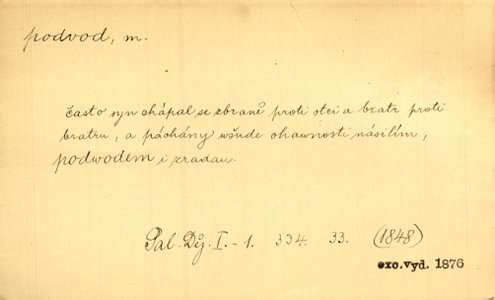 podvod, m.
často syn chápal se zbraně proti otci a bratr proti
bratru, a páchány wšude ohawnosti násilím,
podwodem i zradau.
Pal. Děj. I.-1. 334. 33. (1848)
exc.vyd. 1876